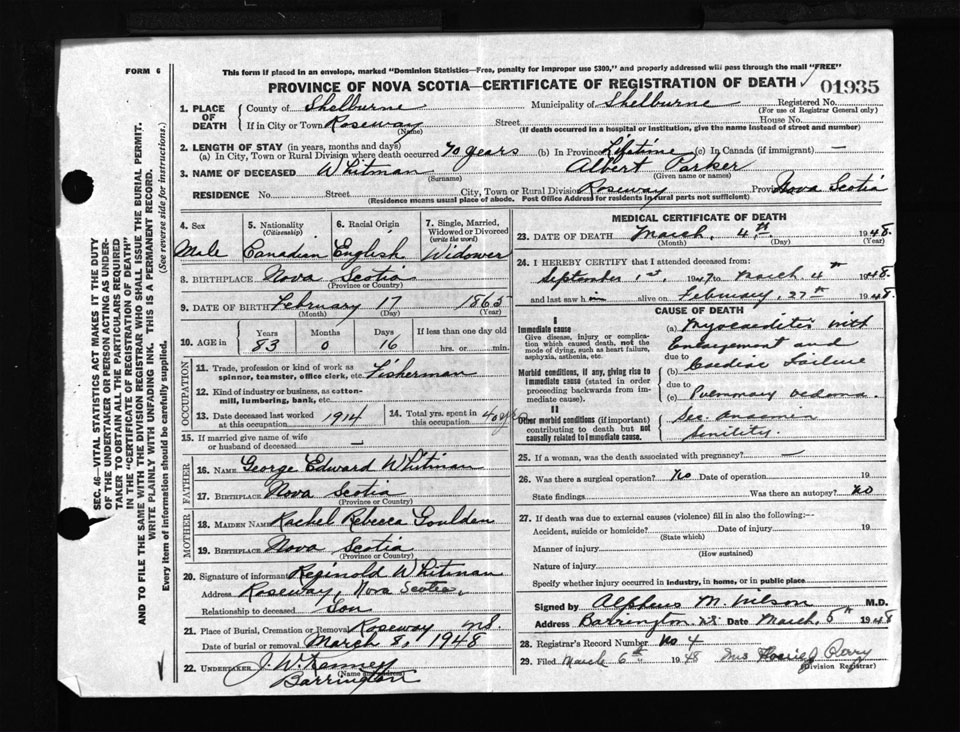 FORM 6
This form if placed in an envelope, marked "Dominion Statistics—Free, penalty for improper use $300," and properly addressed will pass through the mail "FREE"
PROVINCE OF NOVA SCOTIA—CERTIFICATE OF REGISTRATION OF DEATH 01935
1. PLACE OF DEATH County of Shelburne Municipality of Shelburne Registered No.
(For use of Registrar General only)
If in City or Town Roseway Street House No.
(Name) (If death occurred in a hospital or institution, give the name instead of street and number)
2. LENGTH OF STAY (in years, months and days)
(a) In City, Town or Rural Division where death occurred 70 years (b) In Province Lifetime (c) In Canada (if immigrant) —
3. NAME OF DECEASED Whitman Albert Parker
(Surname) (Given name or names)
RESIDENCE No. Street City, Town or Rural Division Roseway Province Nova Scotia
(Residence means usual place of abode. Post Office Address for residents in rural parts not sufficient)
4. Sex 5. Nationality (Citizenship) 6. Racial Origin 7. Single, Married, Widowed or Divorced (write the word)
Male Canadian English Widower
8. BIRTHPLACE Nova Scotia
(Province or Country)
9. DATE OF BIRTH February 17 1865
(Month) (Day) (Year)
10. AGE in Years Months Days If less than one day old
83 0 16 hrs. or min.
OCCUPATION
11. Trade, profession or kind of work as spinner, teamster, office clerk, etc. Fisherman
12. Kind of industry or business, as cotton-mill, lumbering, bank, etc.
13. Date deceased last worked at this occupation 1914 14. Total yrs. spent in this occupation 40 yrs
15. If married give name of wife or husband of deceased —
FATHER
16. NAME George Edward Whitman
17. BIRTHPLACE Nova Scotia
(Province or Country)
MOTHER
18. MAIDEN NAME Rachel Rebecca Goulden
19. BIRTHPLACE Nova Scotia
(Province or Country)
20. Signature of informant Reginold Whitman
Address Roseway, Nova Scotia,
Relationship to deceased Son
21. Place of Burial, Cremation or Removal Roseway N.S.
Date of burial or removal March 8, 1948
22. UNDERTAKER J. W.
(Name and address)
Barrington
MEDICAL CERTIFICATE OF DEATH
23. DATE OF DEATH March, 4th. 1948.
(Month) (Day) (Year)
24. I HEREBY CERTIFY that I attended deceased from:
September 1st, 1947 to March 4th 1948.
and last saw him alive on February, 27th 1948.
CAUSE OF DEATH
I
Immediate cause
Give disease, injury or complication which caused death, not the mode of dying, such as heart failure, asphyxia, asthenia, etc.
(a) Myocarditis with
Enlargement and
due to
Morbid conditions, if any, giving rise to immediate cause (stated in order proceeding backwards from immediate cause).
(b) Cardiac Failure
due to
(c) Pulmonary oedema.
II
Other morbid conditions (if important) contributing to death but not causally related to immediate cause.
Sec. Anaemia
Senility.
25. If a woman, was the death associated with pregnancy? —
26. Was there a surgical operation? No Date of operation 19
State findings Was there an autopsy? No
27. If death was due to external causes (violence) fill in also the following:—
Accident, suicide or homicide? Date of injury 19
(State which)
Manner of injury
(How sustained)
Nature of injury
Specify whether injury occurred in industry, in home, or in public place
Signed by Alpheus M. Wilson M.D.
Address Barrington N.S. Date March, 5th 1948
28. Registrar's Record Number No 4
29. Filed March 6th 1948 Mrs Perry
(Division Registrar)
SEC. 46—VITAL STATISTICS ACT MAKES IT THE DUTY OF THE UNDERTAKER OR PERSON ACTING AS UNDERTAKER TO OBTAIN ALL THE PARTICULARS REQUIRED IN THE "CERTIFICATE OF REGISTRATION OF DEATH" AND TO FILE THE SAME WITH THE DIVISION REGISTRAR WHO SHALL ISSUE THE BURIAL PERMIT.
WRITE PLAINLY WITH UNFADING INK. THIS IS A PERMANENT RECORD.
Every item of information should be carefully supplied. (See reverse side for instructions.)